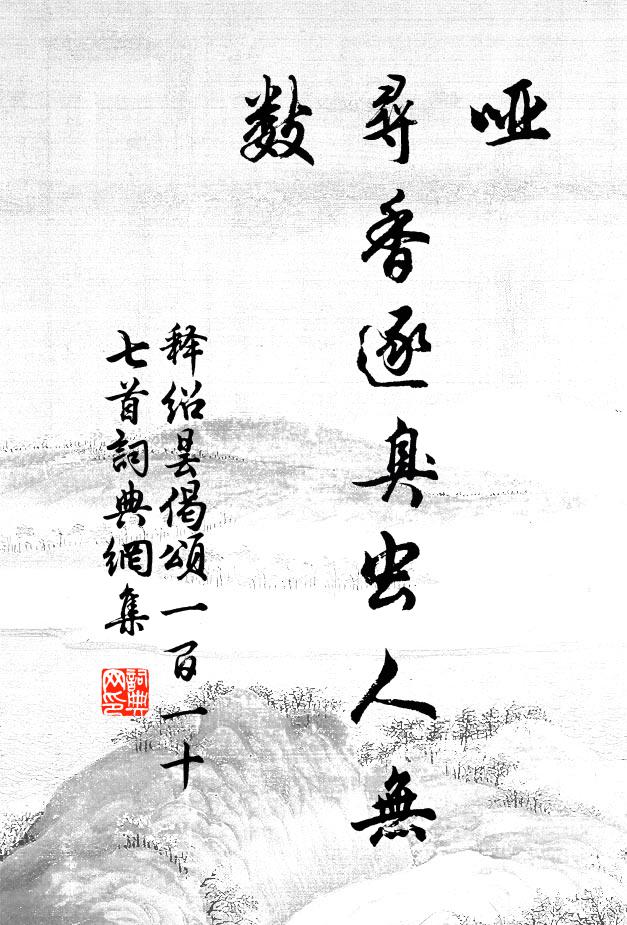 哑
尋香逐臭虫人無
数
释绍昙偈頌一百一十
七首詞典網集
詞典网印